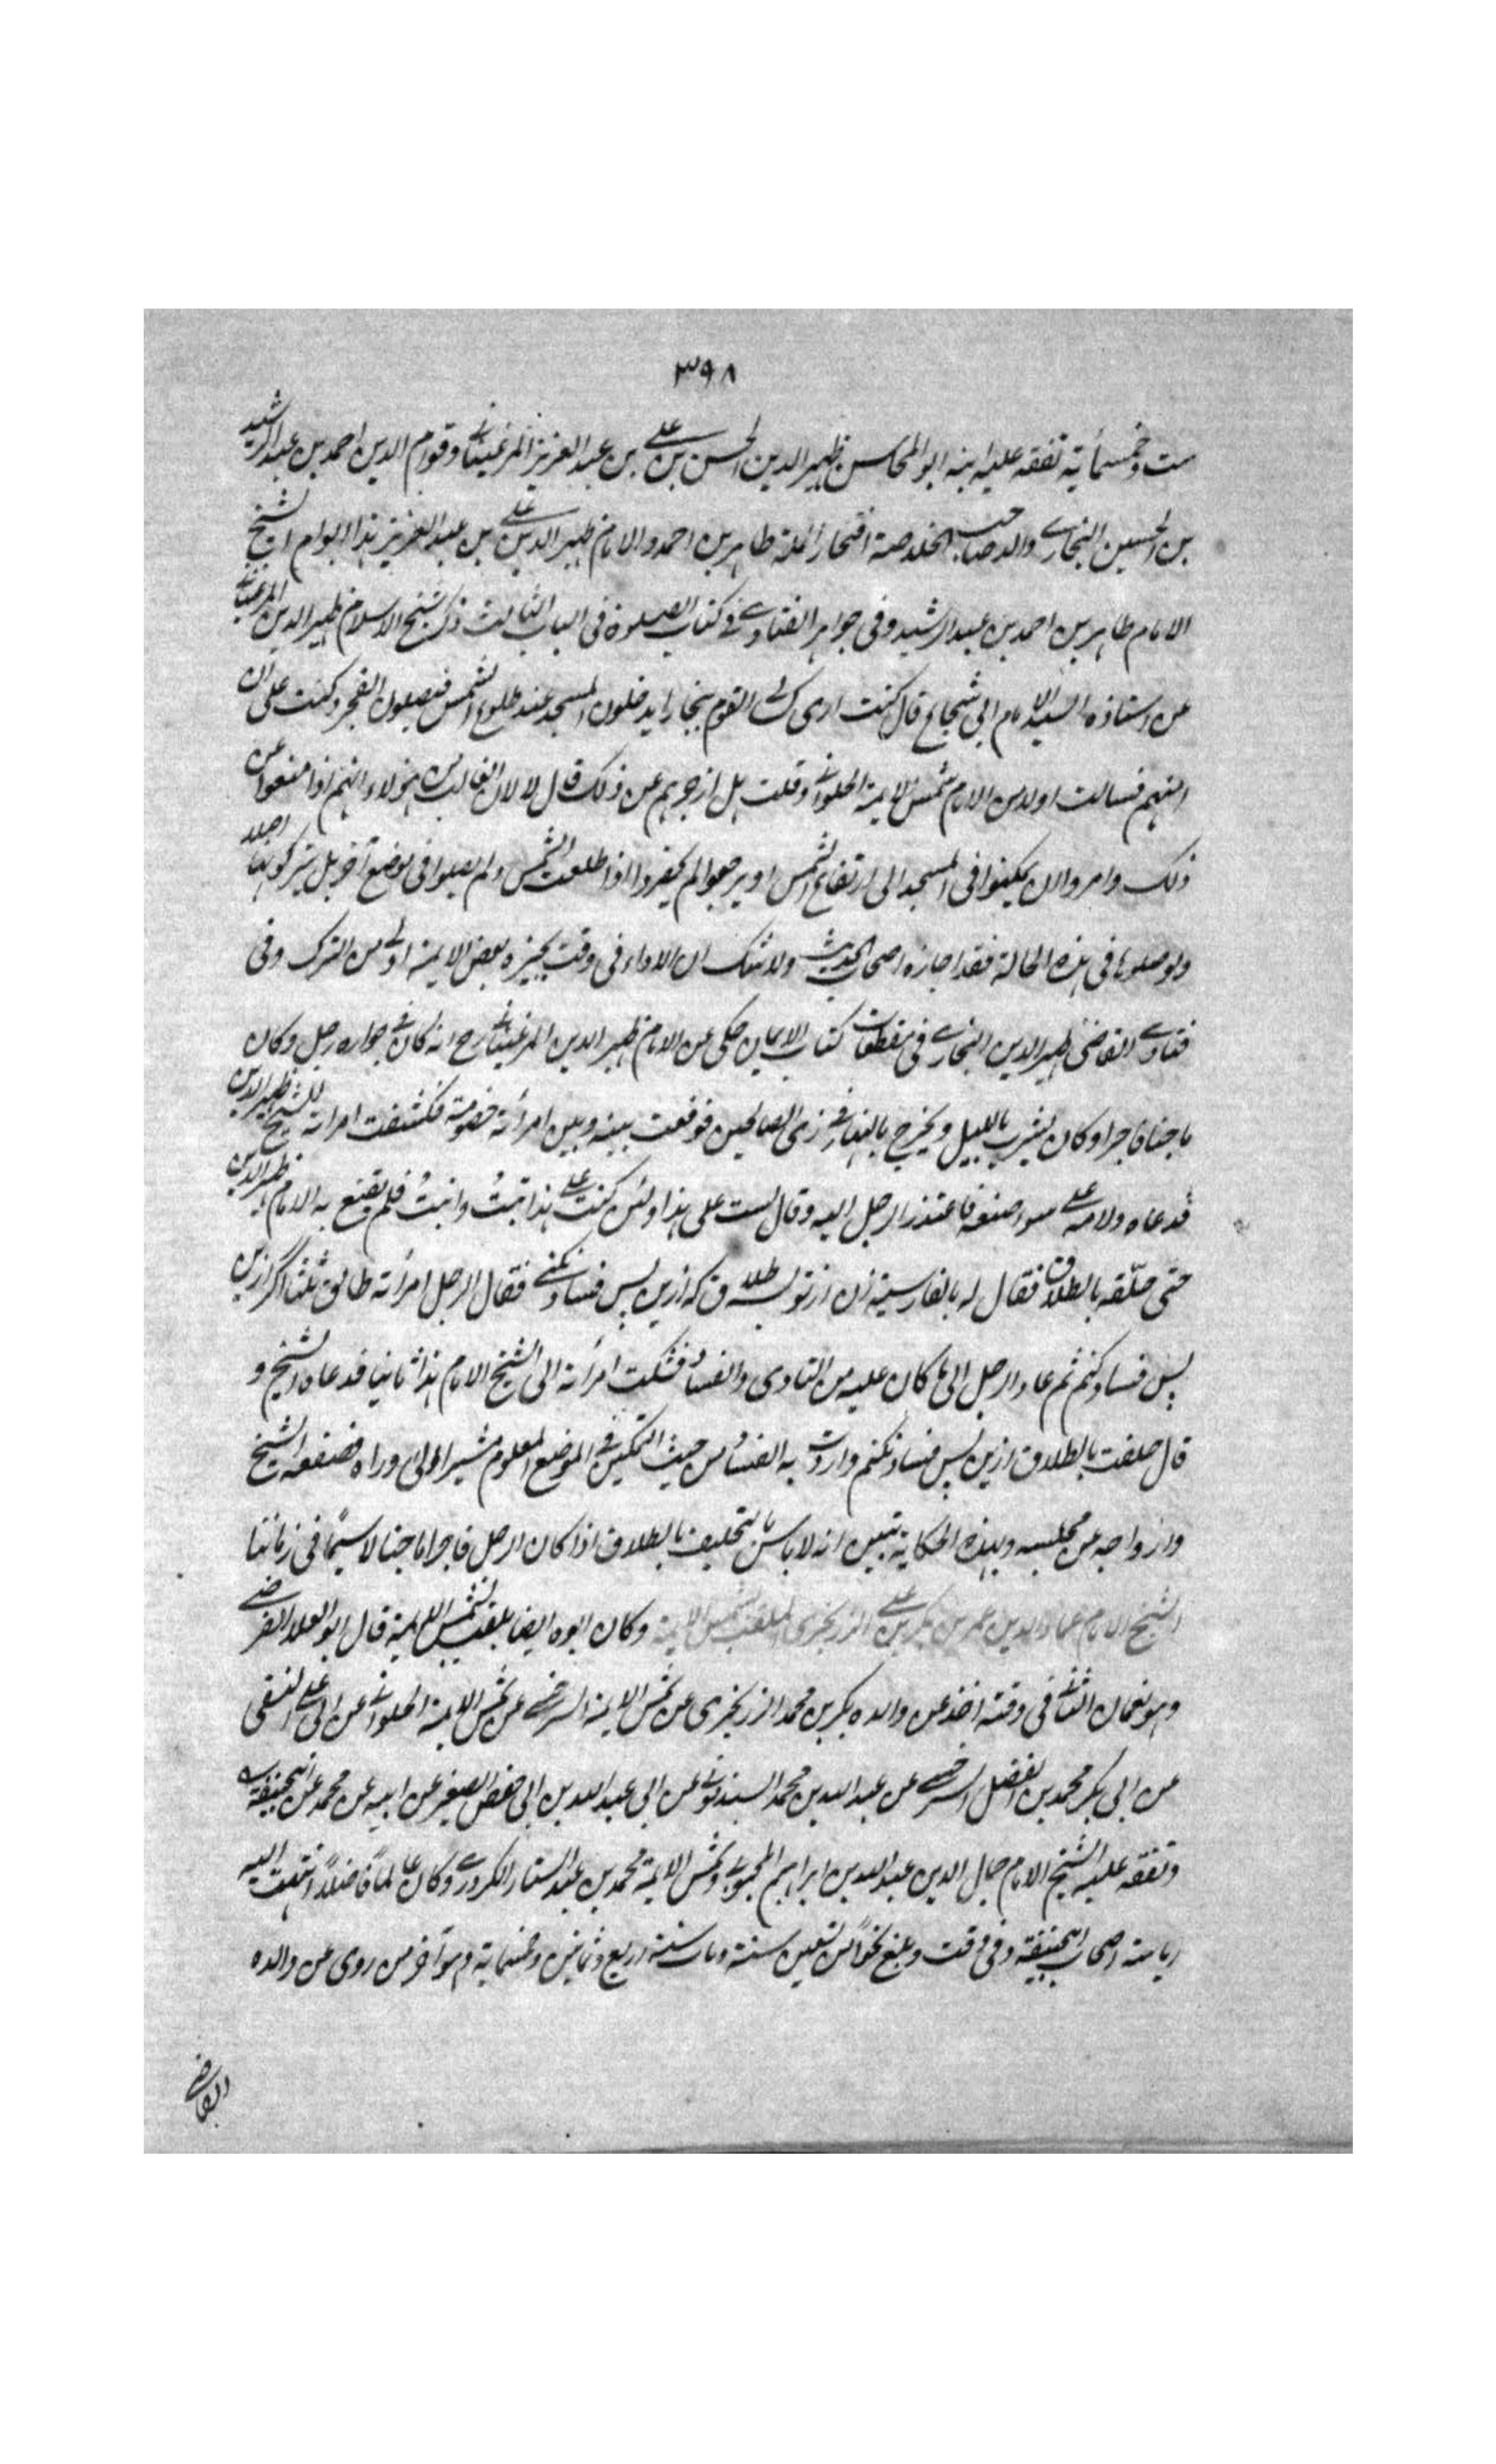 ٣٩٨
ست وخمسمأية تفقه عليه ابنه ابو المحاسن ظهير الدين الحسن بن على بن عبد العزيز المرغينانى وقوام الدين احمد بن عبد الرشيد
بن الحسين البخارى والد صاحب الخلاصة افتخار الملة طاهر بن احمد والامام ظهير الدين على بن عبد العزيز هذا ابو ام الشيخ
الامام طاهر بن احمد بن عبد الرشيد وفى جواهر الفتاوى فى كتاب الصلوة فى الباب الثالث ذكر شيخ الاسلام ظهير الدين المرغينانى
عن استاذه السيد الامام ابى شجاع قال كنت ارى كسالى القوم ببخارا يدخلون المسجد عند طلوع الشمس فيصلون الفجر وكنت على ان
انهيهم فسالت اولا من الامام شمس الايمة الحلوانى وقلت هل ازجرهم عن ذلك قال لا لان الغالب من هؤلاء انهم اذا منعوا عن
ذلك وامروا لان يمكثوا فى المسجد الى ارتفاع الشمس او يرجعوا لم يحضروا اذا طلعت الشمس ولم يصلوا فى موضع آخر بل يتركونها اصلا
ولو صلوها فى هذه الحالة فقد اجازه اصحاب الحديث ولا شك ان الاداء فى وقت يجيزه بعض الايمة اولى من الترك وفى
فتاوى القاضى ظهير الدين البخارى فى مقطعات كتاب الايمان حكى عن الامام ظهير الدين المرغينانى رح انه كان فى جواره رجل وكان
ماجنا فاجرا وكان يشرب بالليل ويخرج بالنهار فى زى الصالحين فوقعت بينه وبين امرأته خصومة فكشفت امراته للشيخ ظهير الدين
فدعاه ولامه على سوء صنعه فاعتذر الرجل اليه وقال لست على هذا ولئن كنت على هذا تبتُ وانبتُ فلم يقنع به الامام ظهير الدين
حتى حلّفه بالطلاق فقال له بالفارسية زن از تو بسه طلاق كه ازين پس فساد نكنى فقال الرجل امرأته طالق ثلثا اگر ازين
پس فساد كنم ثم عاد الرجل الى ما كان عليه من التمادى والفساد فشكت امرأته الى الشيخ الامام هذا ثانيا فدعاه الشيخ و
قال حلفت بالطلاق ازين پس فساد نكنم واردت به الفساد من حيث التمكين فى الموضع المعلوم مشيرا الى وراه فصفعه الشيخ
وازواجه عن مجلسه وبهذه الحكاية تبين انه لا باس بالتحليف بالطلاق اذا كان الرجل فاجرا ماجنا لاسيّما فى زماننا
الشيخ الامام عماد الدين عمر بن بكر بن على الزرنجرى الملقب بشمس الايمة وكان ابوه ايضا يلقب بشمس الايمة قال ابو العلا الفرضى
وهو نعمان الثانى فى وقته اخذ عن والده بكر بن محمد الزرنجرى عن شمس الايمة السرخسى عن شمس الايمة الحلوانى عن ابى على النسفى
عن ابى بكر محمد بن الفضل السرخسى عن عبد الله بن محمد السبذمونى عن ابى عبد الله بن ابى حفص الصغير عن ابيه عن محمد عن ابيحنيفة
وتفقه عليه الشيخ الامام جمال الدين عبيد الله بن ابراهيم المحبوبى وشمس الايمة محمد بن عبد الستار الكردرى وكان عالمًا فاضلًا انتهت اليه
رياسة اصحاب ابيحنيفة وفى وقت وبلغ نحوًا من تسعين سنة ومات سنة اربع وثمانين وخمسماية وهو آخر من روى عن والده
القاضى